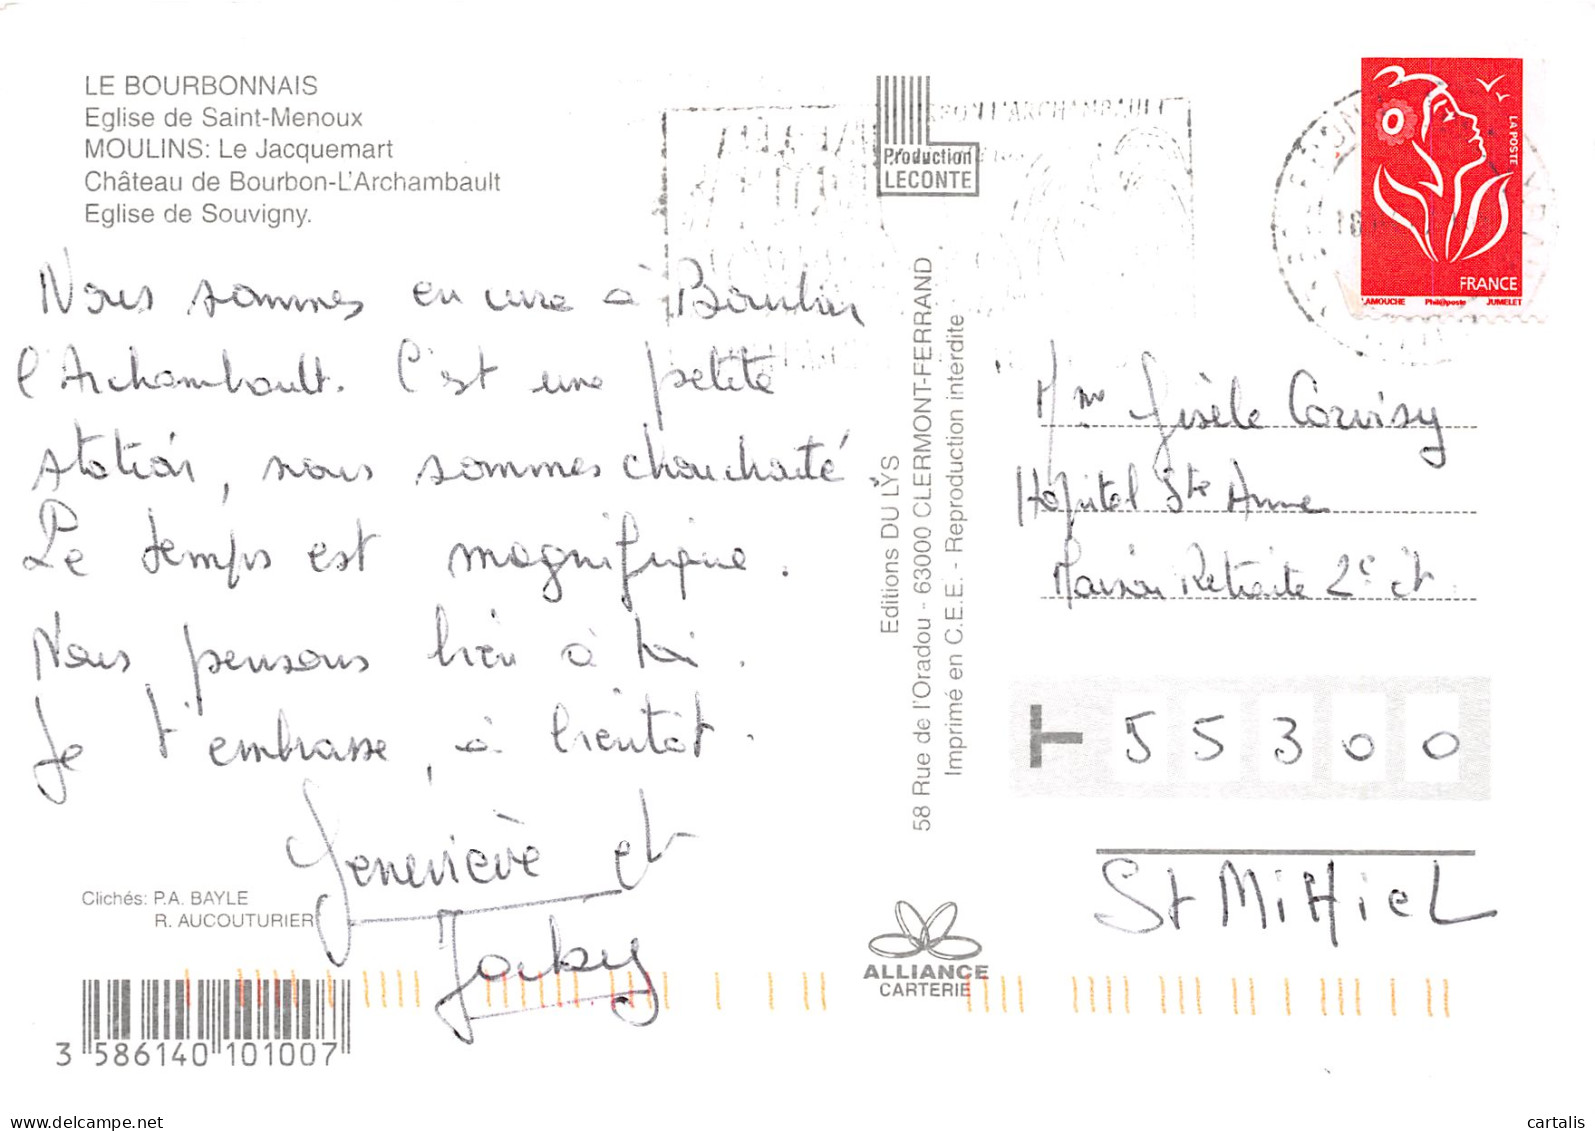 LE BOURBONNAIS
Eglise de Saint-Menoux
MOULINS: Le Jacquemart
Château de Bourbon-L'Archambault
Eglise de Souvigny.
Nous sommes en cure à
l'Archambault. C'est une petite
station, nous sommes chouchouté
Le temps est magnifique.
Nous pensons bien à toi.
Je t'embrasse, à bientôt.
Geneviève et
Jacky
Clichés: P.A. BAYLE
R. AUCOUTURIER
3 586140 101007
Production
LECONTE
Editions DU LYS
58 Rue de l'Oradou - 63000 CLERMONT-FERRAND
Imprimé en C.E.E. - Reproduction interdite
ALLIANCE
CARTERIE
LA POSTE
FRANCE
LAMOUCHE Phil@poste JUMELET
Mme Gisèle Corvisy
Hôpital Ste Anne
Maison Retraite 2e ét
55300
St MiHieL
delcampe.net
cartalis